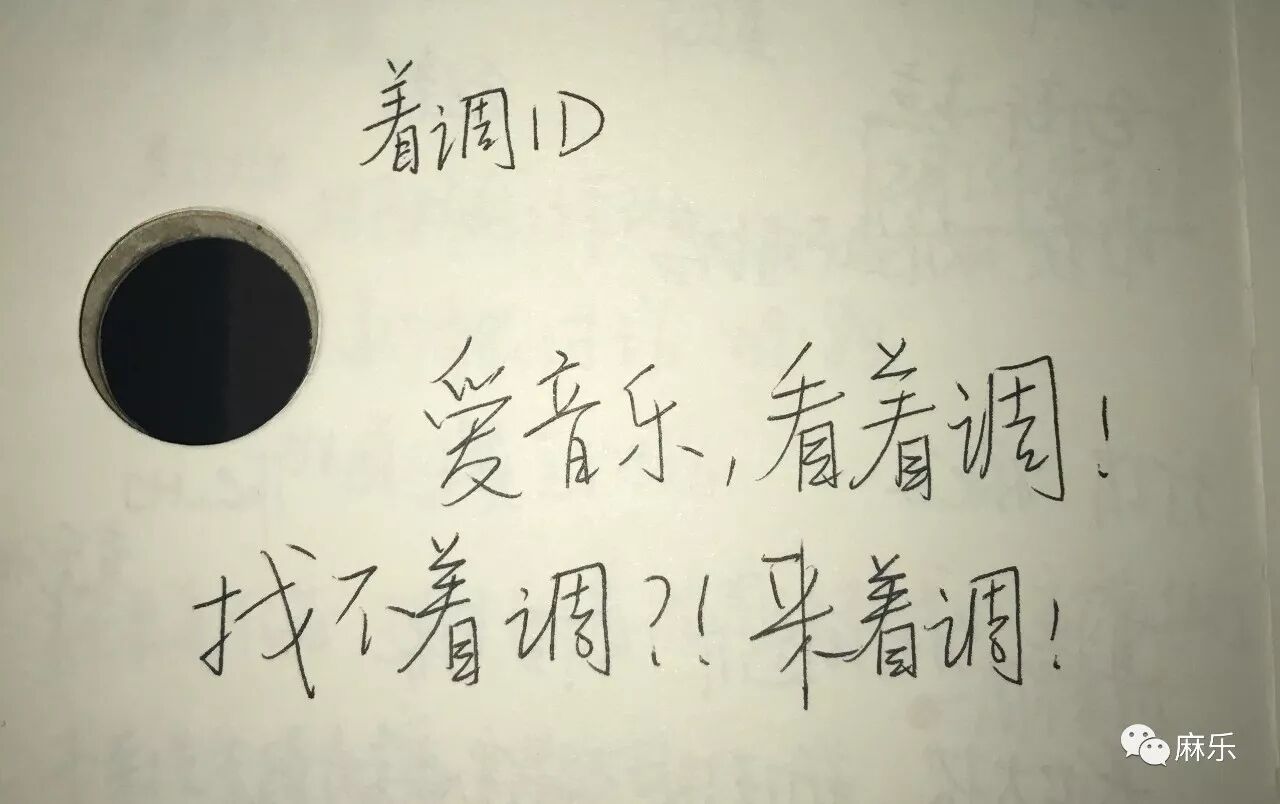 着调ID
爱音乐,看着调!
找不着调?!来着调!
麻乐